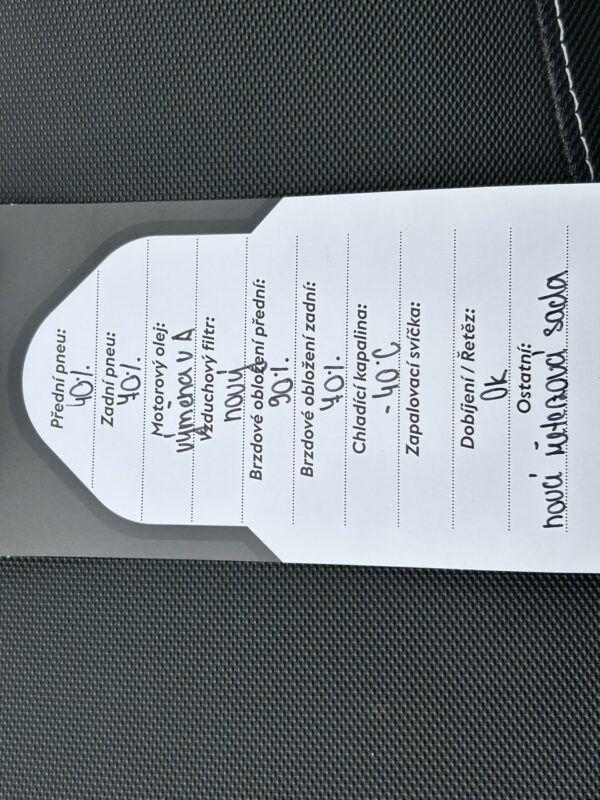 Přední pneu:
40%.
Zadní pneu:
70%.
Motorový olej:
výměna v A
Vzduchový filtr:
nový
Brzdové obložení přední:
90%.
Brzdové obložení zadní:
70%.
Chladící kapalina:
-40°C
Zapalovací svíčka:
Dobíjení / Řetěz:
Ok
Ostatní:
nová řetezová sada